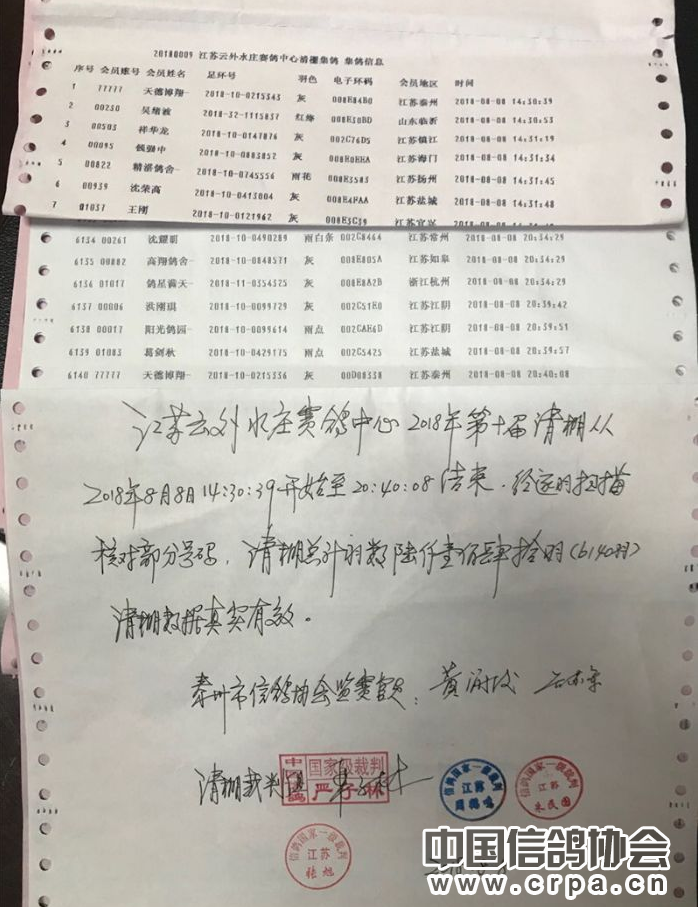 20180009 江苏云外水庄赛鸽中心清棚集鸽 集鸽信息
序号 会员账号 会员姓名 足环号 羽色 电子环码 会员地区 时间
1 77777 天德博翔- 2018-10-0215343 灰 008E84B0 江苏泰州 2018-08-08 14:30:39
2 00230 吴绪波 2018-32-1115837 红绛 008E30BD 山东临沂 2018-08-08 14:30:53
3 00503 祥华龙 2018-10-0147876 灰 002C76D5 江苏镇江 2018-08-08 14:31:19
4 00095 钱强中 2018-10-0883852 灰 008E0EEA 江苏海门 2018-08-08 14:31:34
5 00822 精湛鸽舍- 2018-10-0745556 雨花 008E3583 江苏扬州 2018-08-08 14:31:45
6 00939 沈荣高 2018-10-0413004 灰 008E4FAA 江苏盐城 2018-08-08 14:31:48
7 01037 王刚 2018-10-0121962 灰 008E3C39 江苏宜兴
6134 00261 沈耀明 2018-10-0490289 雨白条 002C8464 江苏常州 2018-08-08 20:34:29
6135 00882 高翔鸽舍- 2018-10-0848571 灰 008E805A 江苏如皋 2018-08-08 20:34:29
6136 01017 鸽星满天- 2018-11-0354325 灰 008E8A2B 浙江杭州 2018-08-08 20:34:29
6137 00006 洪刚琪 2018-10-0099729 灰 002C51E0 江苏江阴 2018-08-08 20:39:42
6138 00017 阳光鸽园- 2018-10-0099614 雨点 002CAE6D 江苏江阴 2018-08-08 20:39:51
6139 01083 葛剑秋 2018-10-0429175 雨点 002C5425 江苏盐城 2018-08-08 20:39:57
6140 77777 天德博翔- 2018-10-0215336 灰 00D08338 江苏泰州 2018-08-08 20:40:08
江苏云外水庄赛鸽中心2018年第十届清棚从
2018年8月8日14:30:39开始至20:40:08结束.经逐羽扫描
核对部分号码，清棚总计羽数陆仟壹佰肆拾羽(6140羽)
清棚数据真实有效。
泰州市信鸽协会监赛官员：黄
清棚裁判
国家级裁判
信鸽国家一级裁判
江苏
信鸽国家一级裁判
江苏
朱民国
信鸽国家一级裁判
江苏
张旭
中国信鸽协会
www.crpa.cn